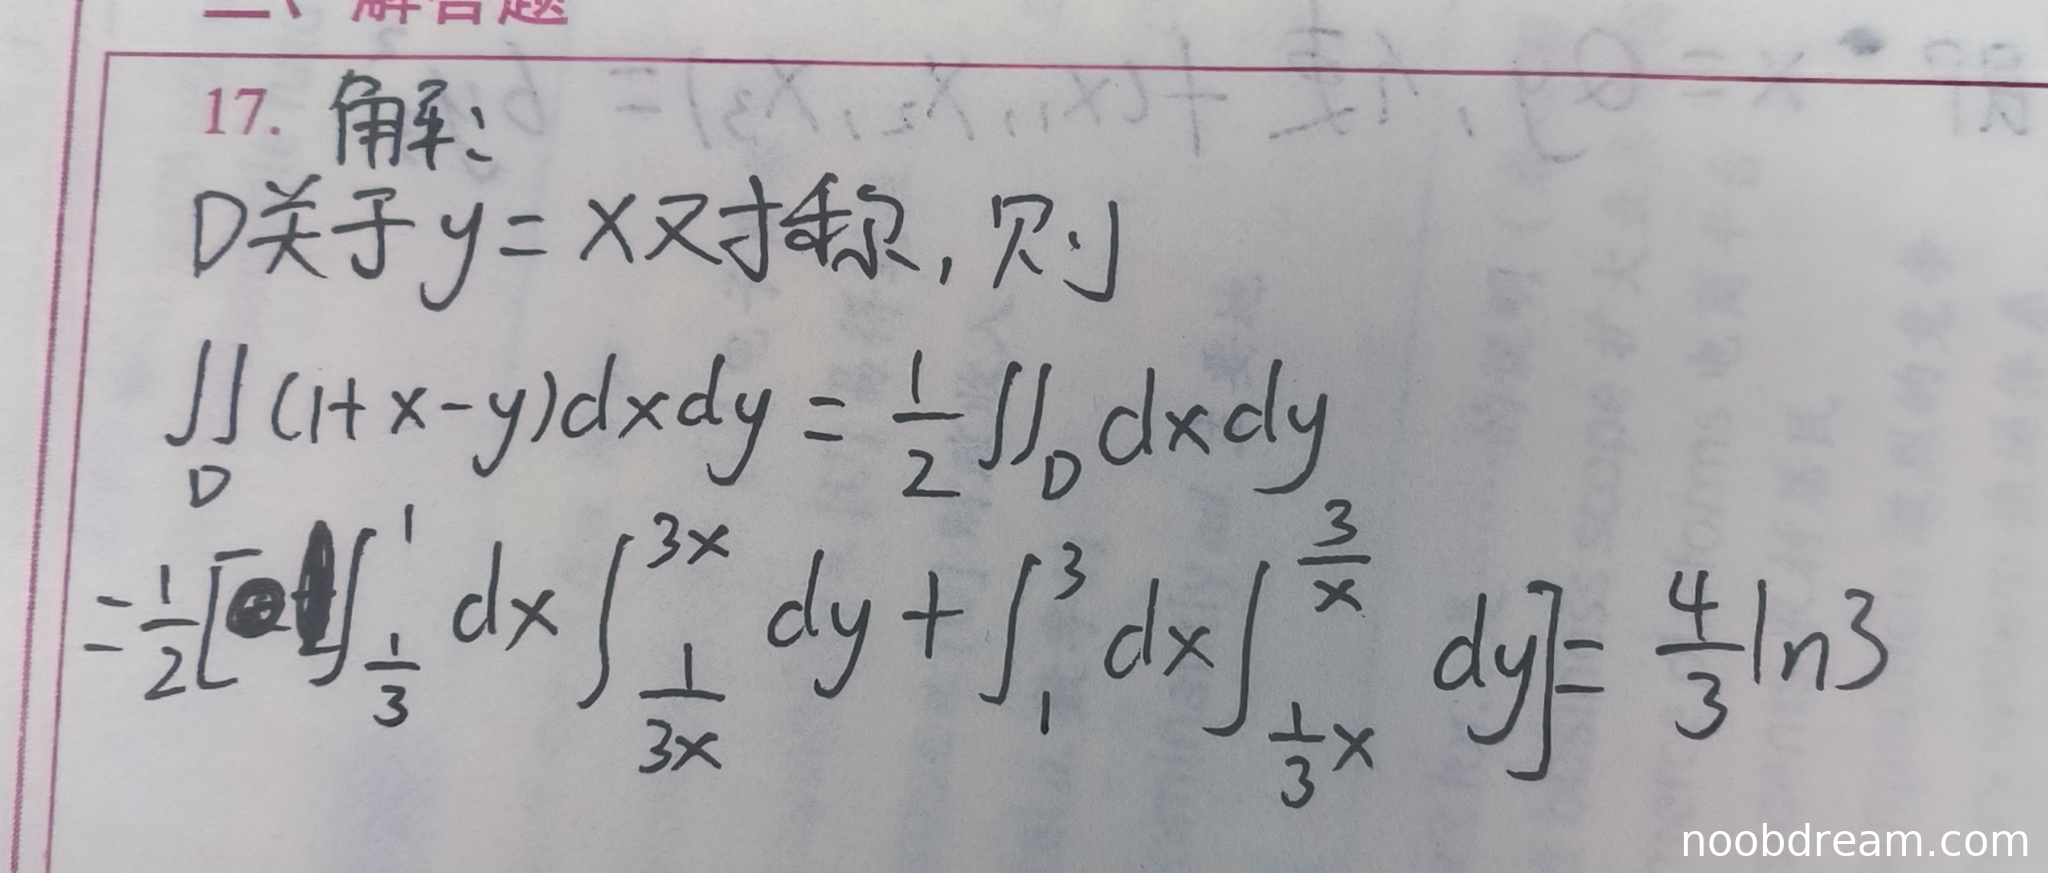 二、解答题
17. 解:
D关于y=x对称,则
∬_D (1+x-y)dxdy = 1/2 ∬_D dxdy
= 1/2 [∫_{1/3}^{1} dx ∫_{1/(3x)}^{3x} dy + ∫_{1}^{3} dx ∫_{1/3 x}^{3/x} dy] = 4/3 ln3
noobdream.com